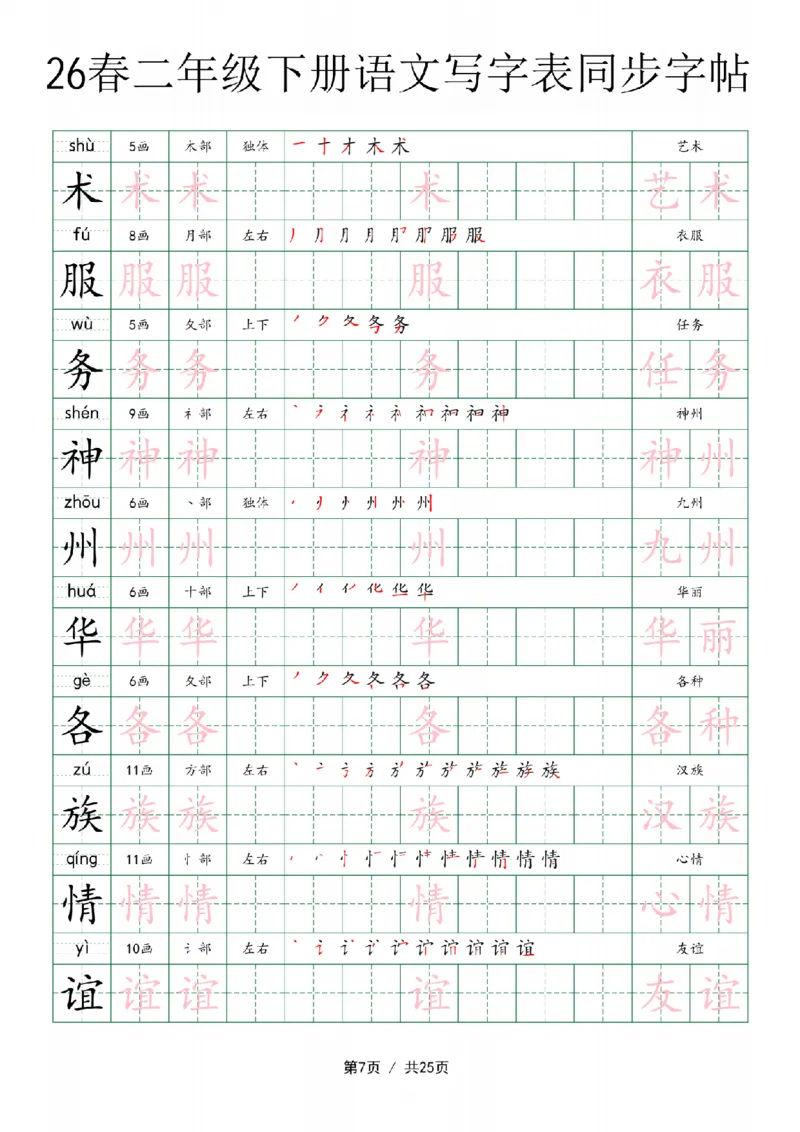 26春二年级下册语文写字表同步字帖
shù 5画 木部 独体 一 十 才 木 术 艺术
术 术 术 术 艺 术
fú 8画 月部 左右 服 衣服
服 服 服 服 衣 服
wù 5画 夂部 上下 夂 务 任务
务 务 务 务 任 务
shén 9画 礻部 左右 礻 神 神州
神 神 神 神 神 州
zhōu 6画 丶部 独体 州 九州
州 州 州 州 九 州
huá 6画 十部 上下 亻 化 华 华丽
华 华 华 华 华 丽
gè 6画 夂部 上下 夂 各 各种
各 各 各 各 各 种
zú 11画 方部 左右 方 族 汉族
族 族 族 族 汉 族
qíng 11画 忄部 左右 忄 情 心情
情 情 情 情 心 情
yì 10画 讠部 左右 讠 谊 友谊
谊 谊 谊 谊 友 谊
第7页 / 共25页